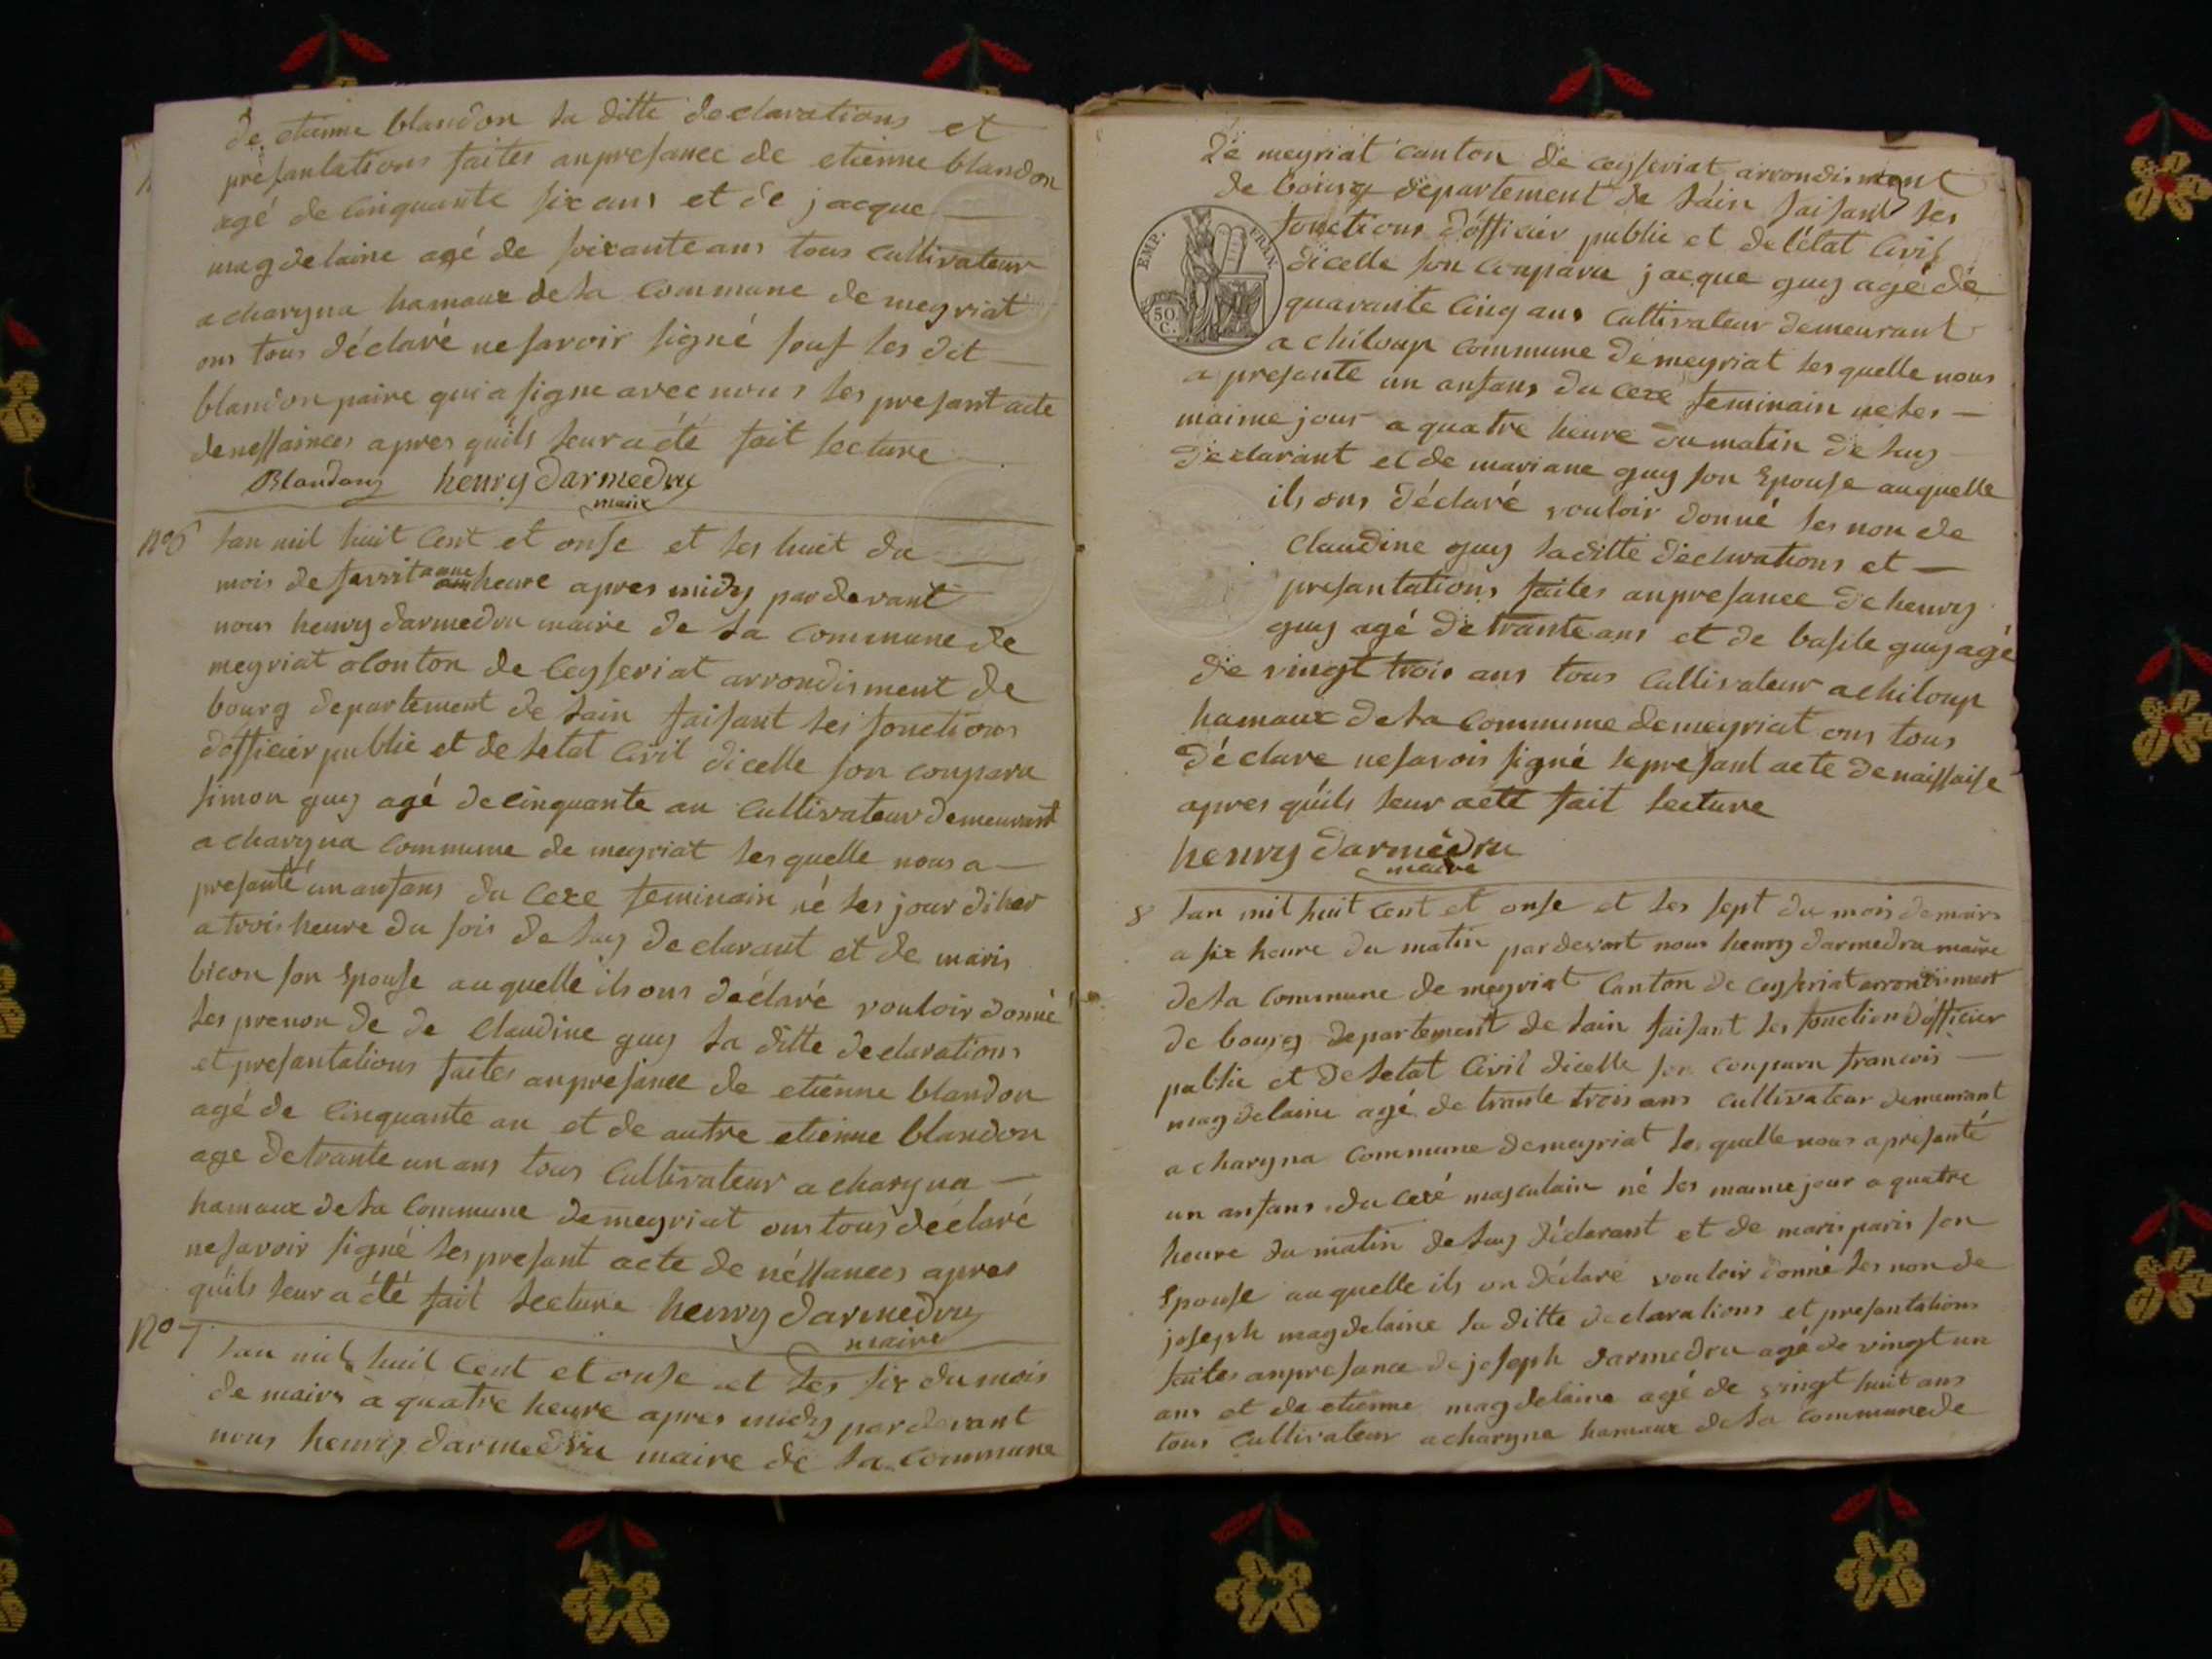 de etienne blandon la ditte declarations et
presantations faites anpresance de etienne blandon
agé de cinquante six ans et de jacque
magdelaine agé de soixante ans tous cultivateur
a charyna hamaux de la commune de meyriat
ons tous déclaré ne savoir signé souf les dit
blandon paire qui a signe avec nous les presant acte
de nessainces apres quils leur a été fait lecture
Blandon henry darmedru
maire
No 6 lan mil huit cent et onse et les huit du
mois de favrit a une heure apres midy pardevant
nous henry darmedru maire de la commune de
meyriat canton de ceyseriat arrondisment de
bourg departement de lain faisant les fonctions
dofficier public et de letat civil dicelle son conparu
simon guy agé de cinquante an cultivateur demeurant
a charyna commune de meyriat lesquelle nous a
presanté un anfans du cexe feminain né les jour diher
a trois heure du soir de luy declarant et de marie
bicon son Epouse auquelle ils ons déclaré vouloir donné
les prenon de de Claudine guy la ditte declarations
et presantations faites anpresance de etienne blandon
agé de cinquante an et de autre etienne blandon
age de trante un ans tous cultivateur a charyna
hamaux de la commune de meyriat ons tous déclaré
ne savoir signé les presant acte de néssances apres
quils leur a été fait lecture henry darmedru
maire
No 7 lan mil huit cent et onse et les six du mois
de mairs a quatre heure apres midy pardevant
nous henry darmedru maire de la commune
de meyriat canton de ceyseriat arrondisment
de bourg departement de lain faisant les
fonctions dofficier public et de létat civil
EMP. FRAN.
50. C.
dicelle son conparu jacque guy agé de
quarante cinq ans cultivateur demeurant
a chiloup commune de meyriat lesquelle nous
a presante un anfans du cexe feminain ne les
maime jour a quatre heure du matin de luy
declarant et de mariane guy son Epouse auquelle
ils ons déclaré vouloir donné les non de
Claudine guy la ditte declarations et
presantations faites anpresance de henry
guy agé de trante ans et de basile guy agé
de vingt trois ans tous cultivateur a chiloup
hamaux de la commune de meyriat ons tous
déclare ne savois signé le presant acte de naissaise
apres quils leur a été fait lecture
henry darmedru
maire
8 lan mil huit cent et onse et les sept du mois de mairs
a six heure du matin pardevant nous henry darmedru maire
de la commune de meyriat canton de ceyseriat arrondisment
de bourg departement de lain faisant les fonction dofficier
public et de letat civil dicelle son conparu francois
magdelaine agé de trante trois ans cultivateur demeurant
a charyna commune de meyriat lesquelle nous a presanté
un anfans du cexé masculain né les maime jour a quatre
heure du matin de luy déclarant et de marie paris son
Epouse auquelle ils on déclaré vouloir donné les non de
joseph magdelaine la ditte declarations et presantations
faites anpresance de joseph darmedru agé de vingt un
ans et de etienne magdelaine agé de vingt huit ans
tous cultivateur a charyna hamaux de la commune de